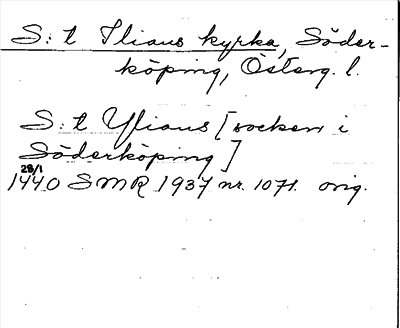 S:t Ilians kyrka, Söder-
köping, Österg. l.
S:t Ylians [socken i
Söderköping]
28/1
1440 SMR 1937 nr. 1071. orig.